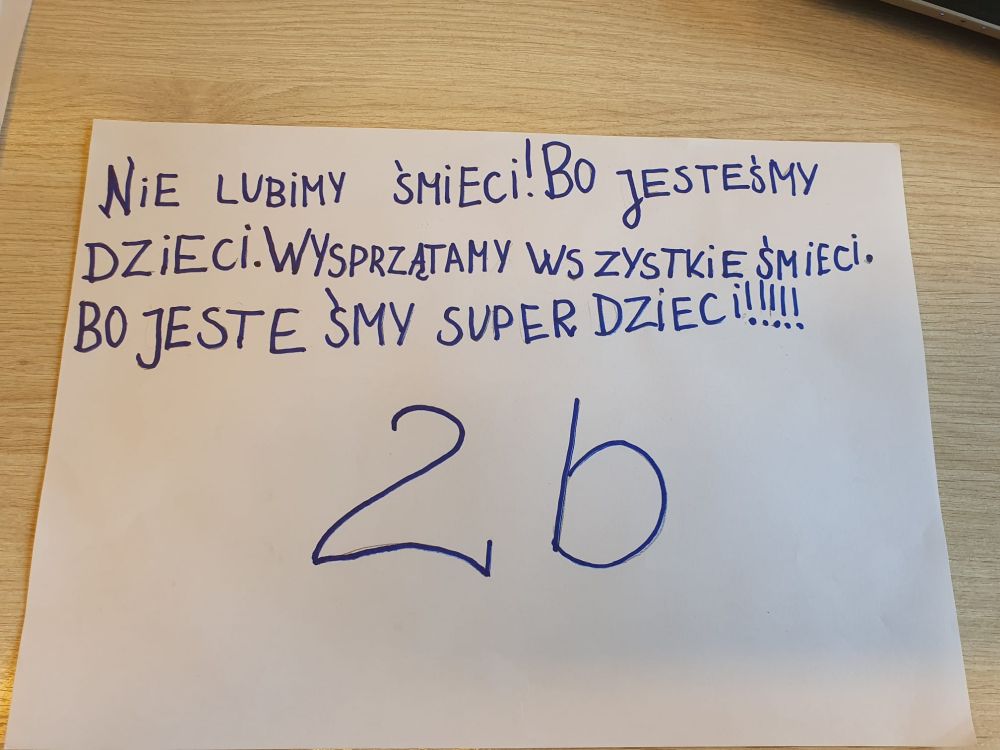 NiE LUBiMY ŚMiECi! BO JESTEŚMY
DZiECi. WYSPRZĄTAMY WSZYSTKiE ŚMiECi.
BO JESTEŚMY SUPER DZiECi!!!!!
2 b